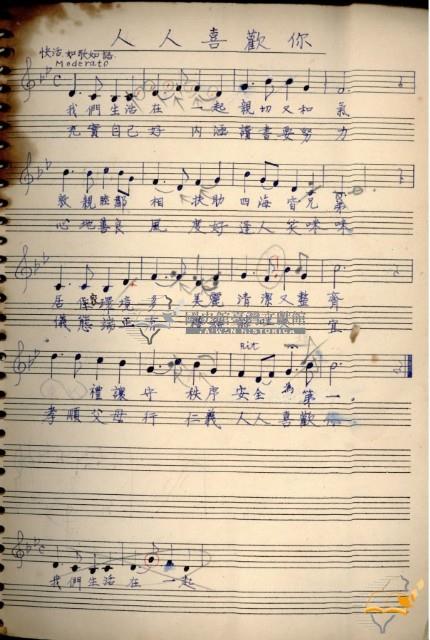 人人喜歡你
快活 如歌如話
Moderato
我們生活在 一起親切又和氣
充實自己好 內涵讀書要努力
敦親睦鄰 相 扶助四海皆兄弟
心地善良 風 度好逢人笑咪咪
居 環境 多 美麗清潔又整齊
國史館臺灣文獻館
TAIWAN HISTORICA
儀態端正 宜
Rit
禮讓守 秩序安全為第一。
孝順父母行 仁義人人喜歡你
我們生活在 一起